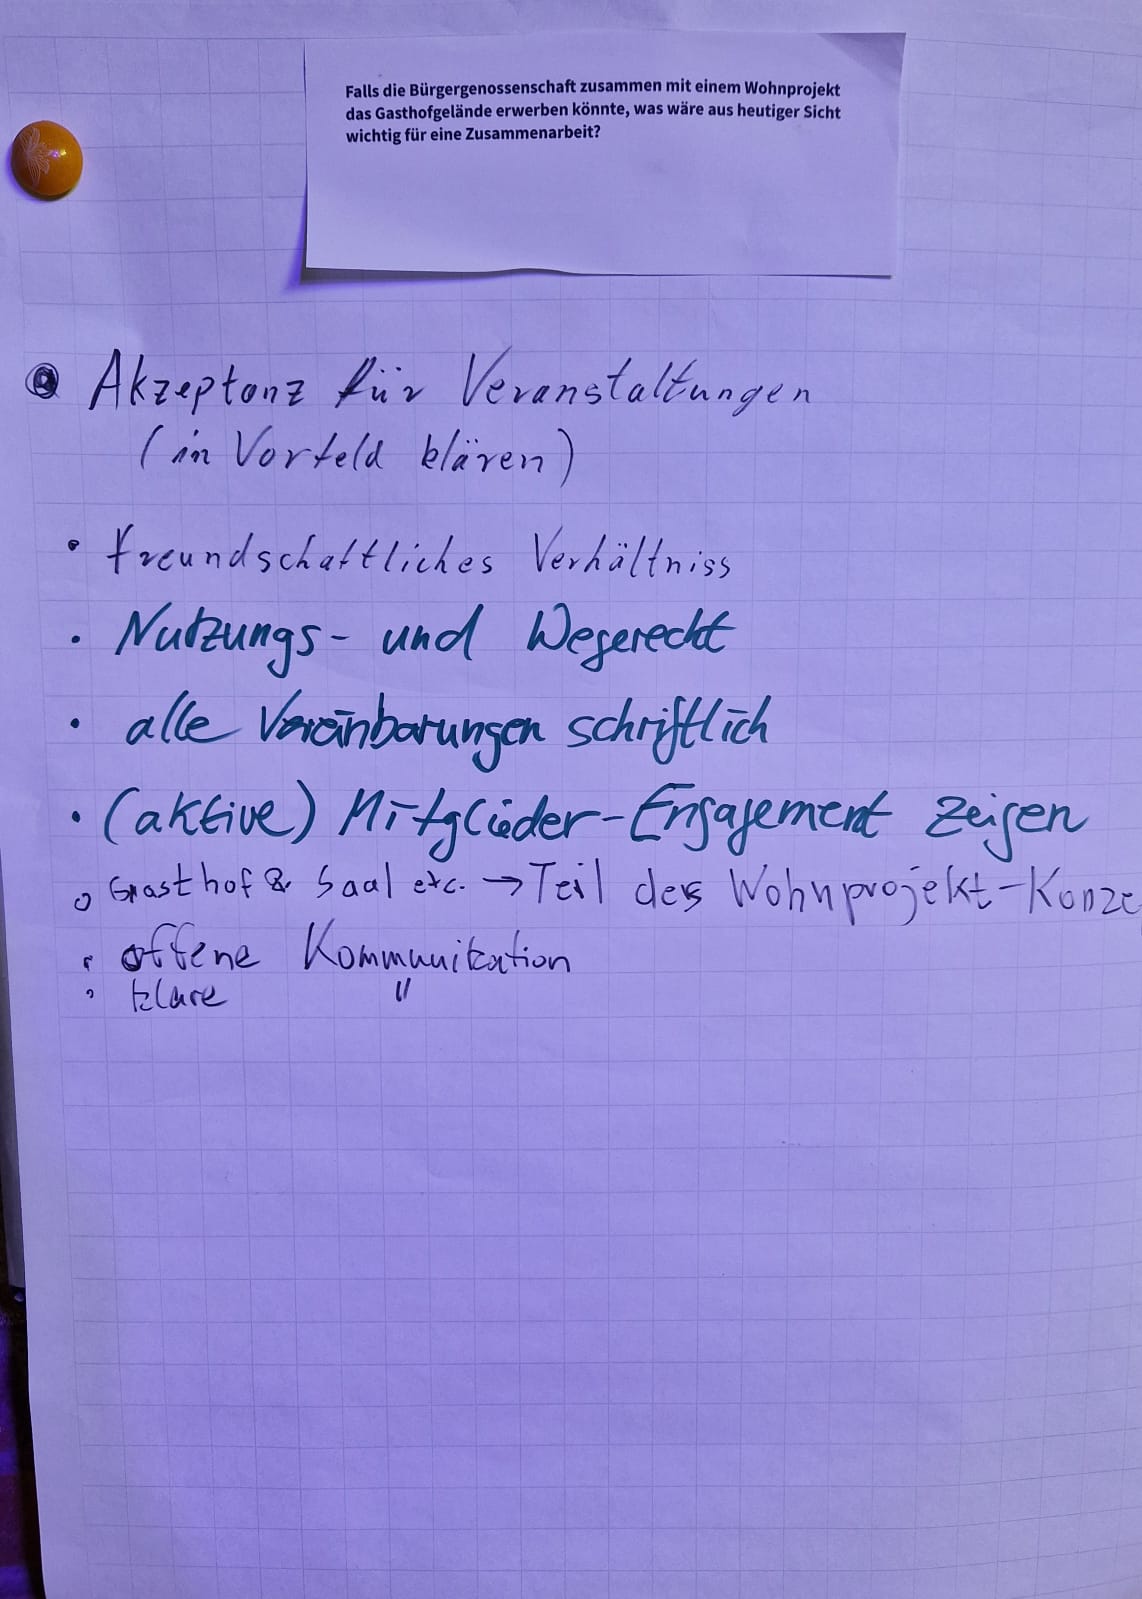 Falls die Bürgergenossenschaft zusammen mit einem Wohnprojekt
das Gasthofgelände erwerben könnte, was wäre aus heutiger Sicht
wichtig für eine Zusammenarbeit?
Akzeptanz für Veranstaltungen
(in Vorfeld klären)
• freundschaftliches Verhältniss
• Nutzungs- und Wegerecht
• alle Vereinbarungen schriftlich
• (aktive) Mitglieder-Engagement zeigen
Gasthof & Saal etc. → Teil des Wohnprojekt-Konze
• offene Kommunikation
• klare "